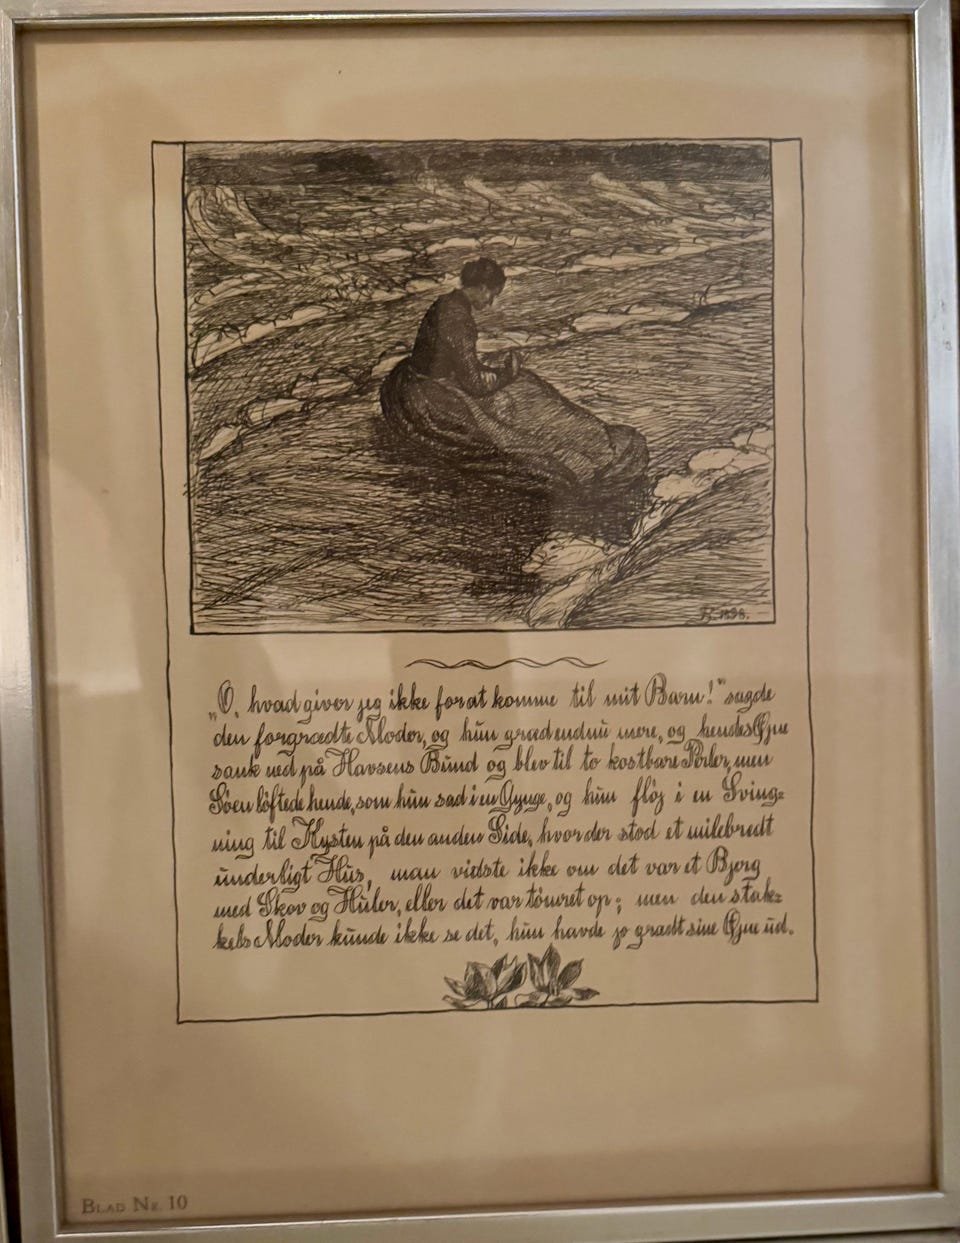 „O, hvad giver jeg ikke for at komme til mit Barn!" sagde
den forgrædte Moder, og hun græd endnu mere, og hendes Øjne
sank ned på Havsens Bund og blev til to kostbare Perler, men
Søen løftede hende, som hun sad i en Gynge, og hun fløj i en Sving=
ning til Kysten på den anden Side, hvor der stod et milebredt
underligt Hus, man vidste ikke om det var et Bjerg
med Skov og Huler, eller det var tømret op; men den stak=
kels Moder kunde ikke se det, hun havde jo grædt sine Øjne ud.
BLAD Nr. 10